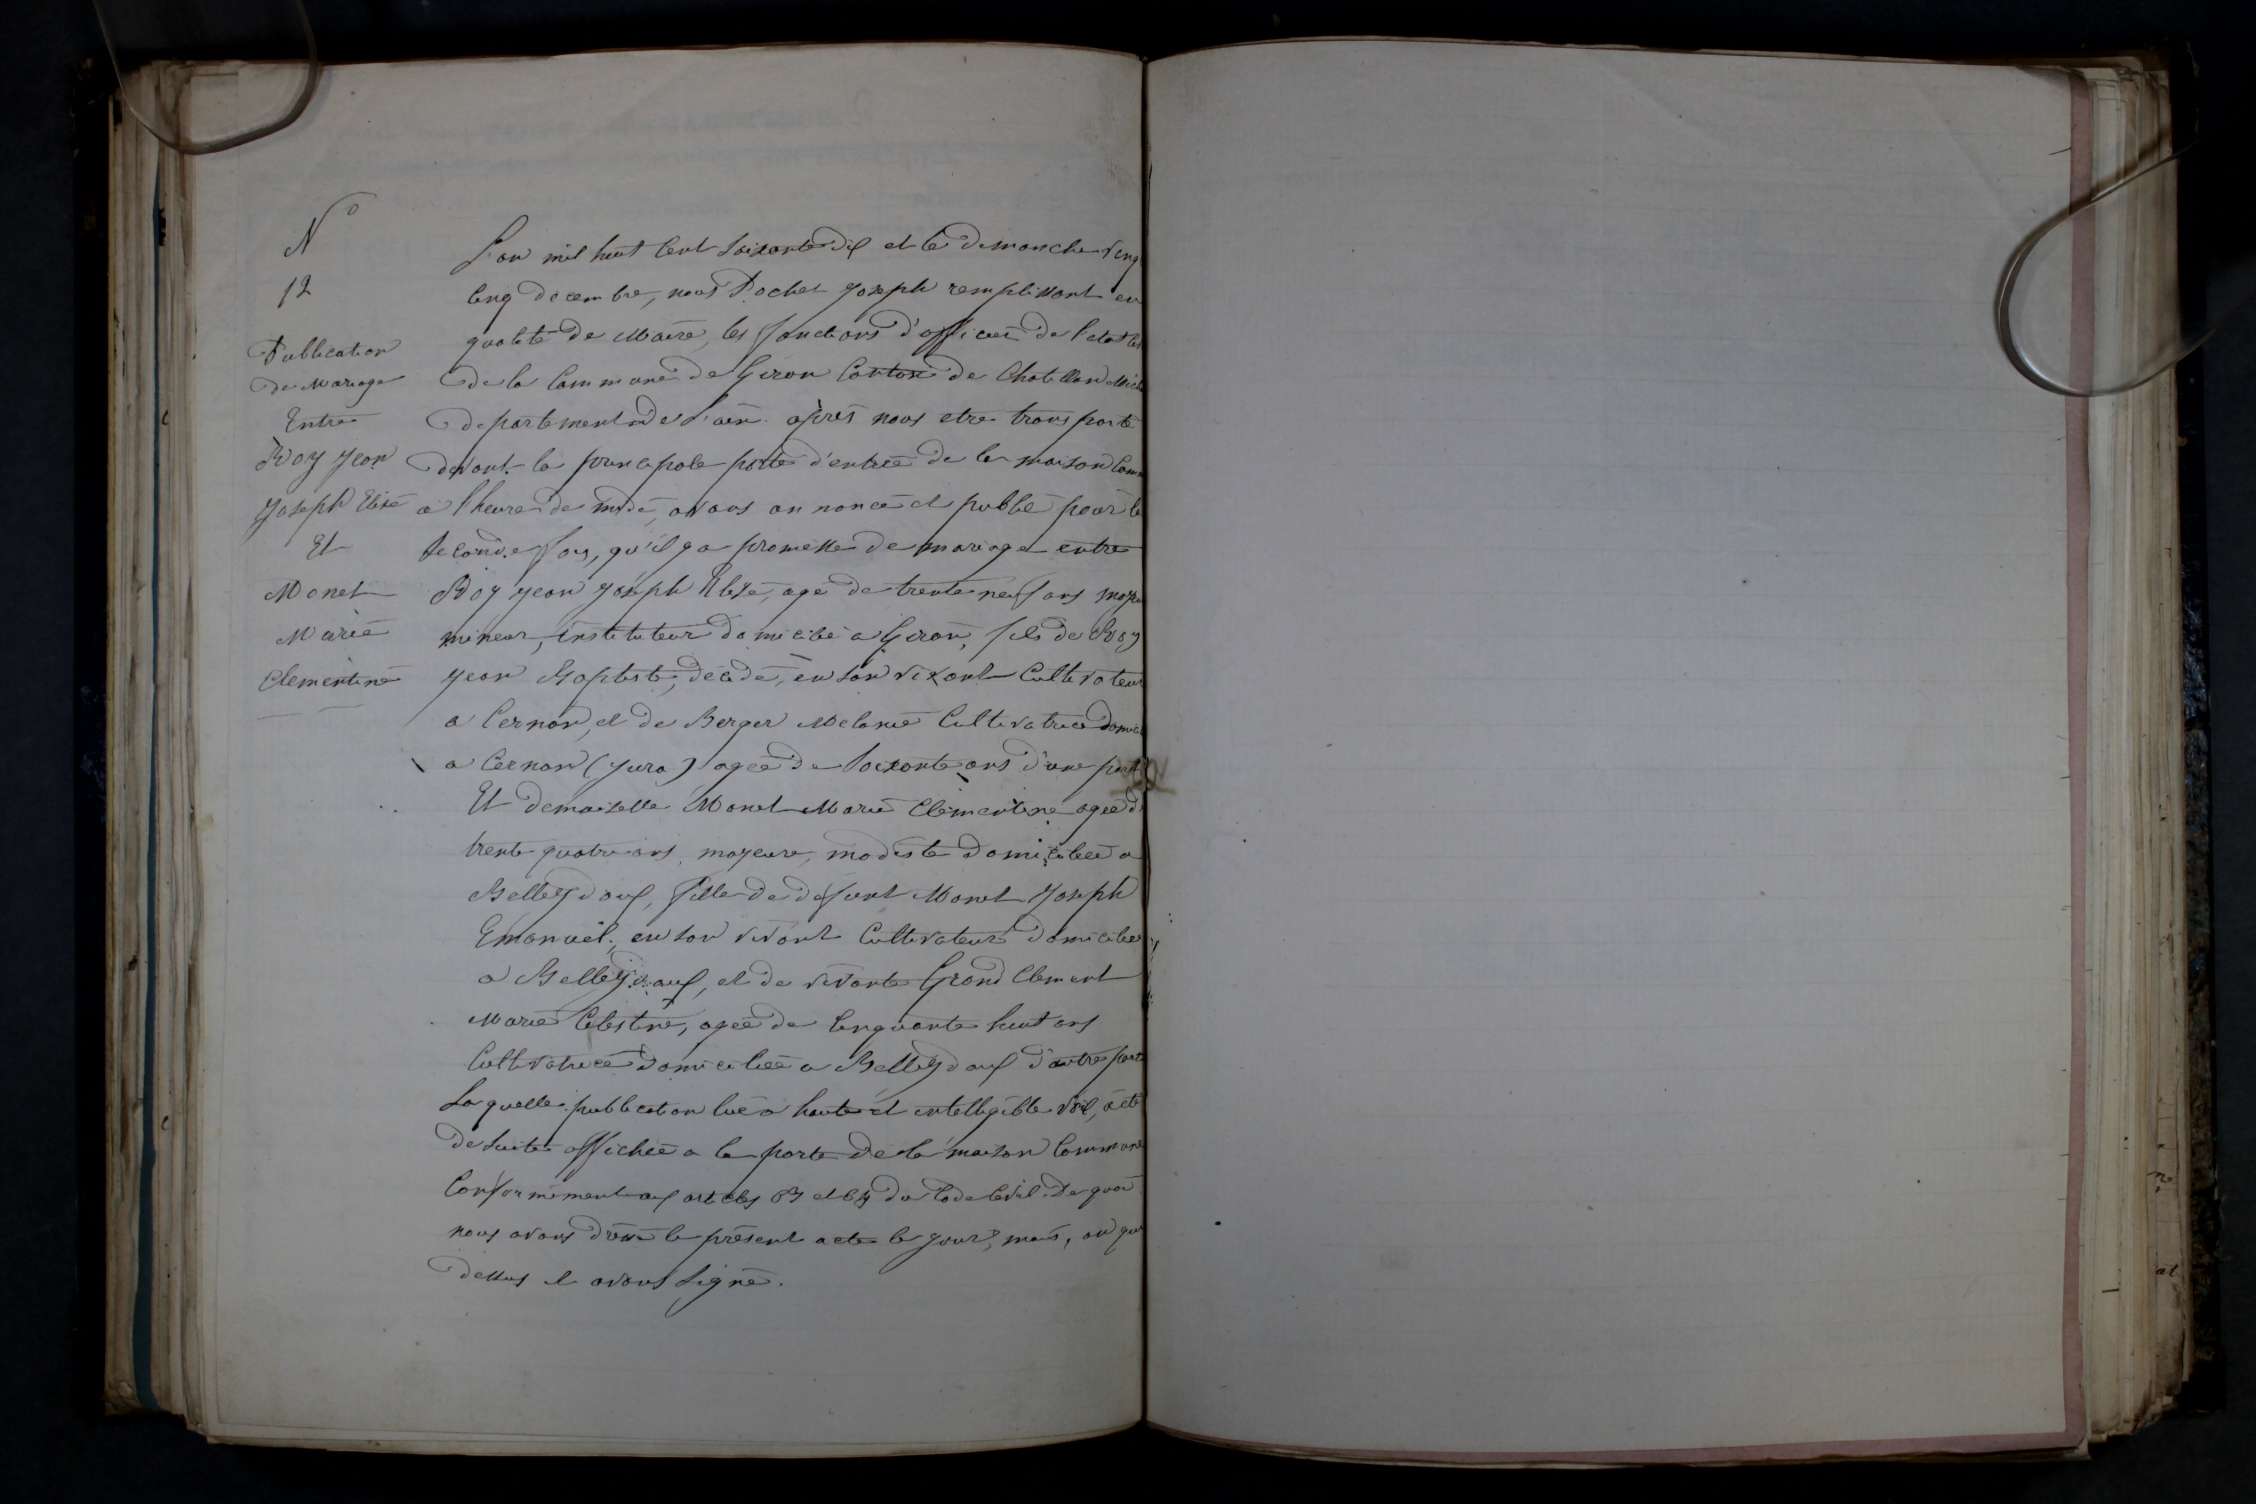 No
12
Publication
de Mariage
Entre
Roy Jean
Joseph Elisé
Et
Monet
Marie
Clementine
L'an mil huit cent soixante dix et le dimanche ving
cinq decembre, nous Pochet Joseph remplissant en
qualité de Maire, les fonctions d'officier de l'etat
de la Commune de Giron Canton de Chatillon Mich
departement de l'ain. après nous etre transporté
devant la principale porte d'entrée de la maison Com
a l'heure de midi, avons annoncé et publié pour la
seconde fois, qu'il y a promesse de mariage entre
Roy Jean Joseph Elisé, agé de trente neuf ans
mineur, instituteur domicilié a Giron, fils de Roy
Jean Baptiste, décédé, en son vivant Cultivateur
a Cernon, et de Berger Melanie Cultivatrice domici
a Cernon (Jura) agée de soixante ans d'une part
Et demoiselle Monet Marie Clementine agée d
trente quatre ans, majeure, modiste domiciliée a
Belleydoux, fille de defunt Monet Joseph
Emanuel, en son vivant Cultivateur domicilié
a Belleydoux, et de vivante Grand Clement
Marie Celestine, agée de cinquante huit ans
Cultivatrice domiciliée a Belleydoux d'autre part
Laquelle publication lue a haute et intelligible voix, a eté
de suite affichée a la porte de la maison Commune
Conformement aux articles 63 et 64 du Code Civil. De quoi
nous avons dressé le présent acte le jour, mois, an que
dessus et avons signé.